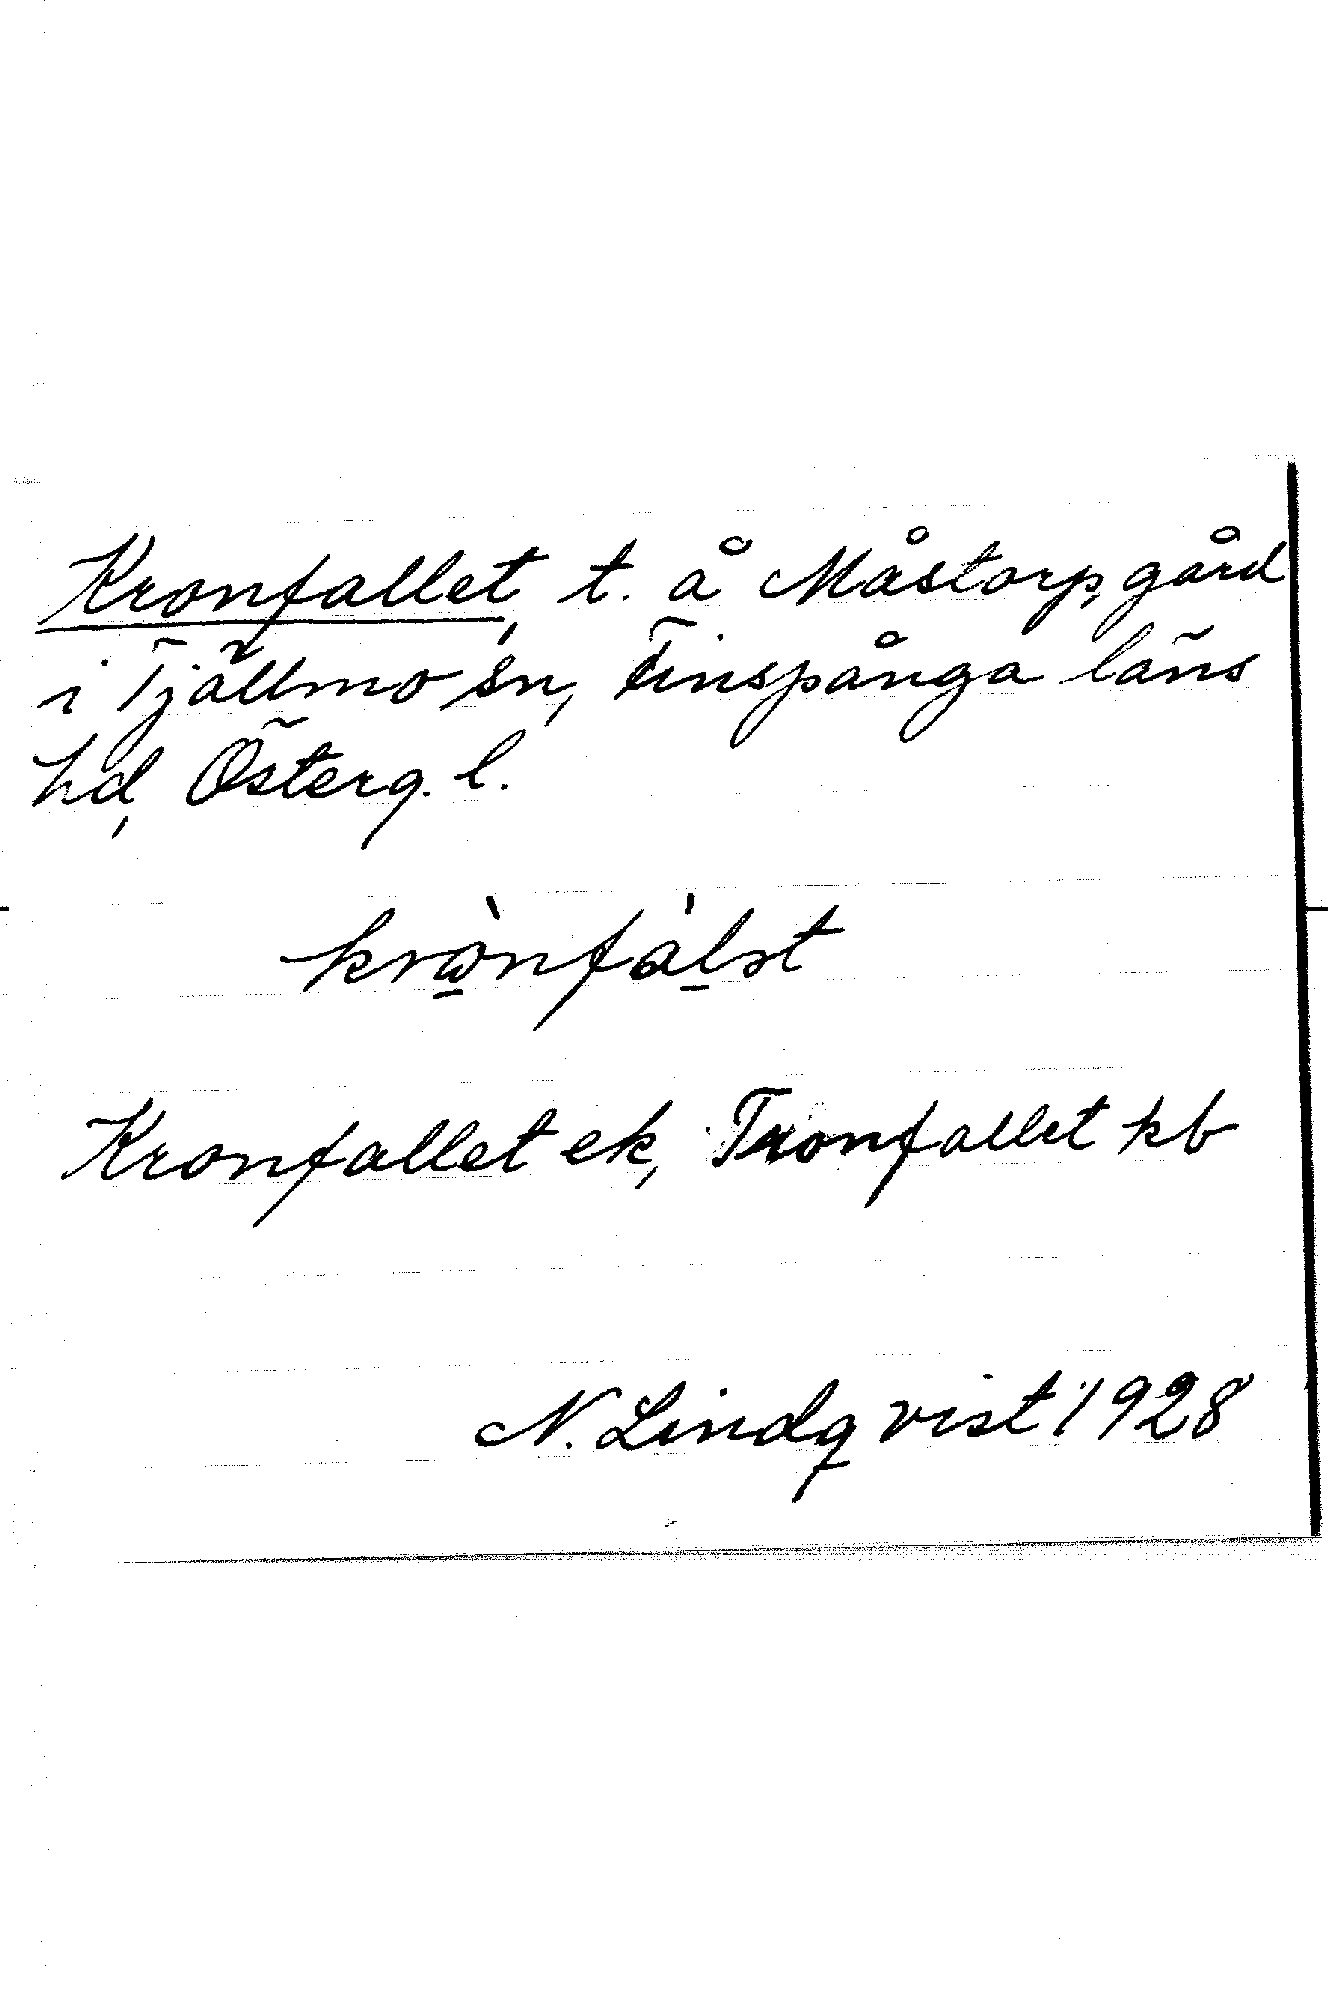 Kronfallet, t. å Måstorp, gård
i Tjällmo sn, Finspånga läns
hd, Österg. l.
Kronfallet ek, Tronfallet kb
N. Lindqvist 1928